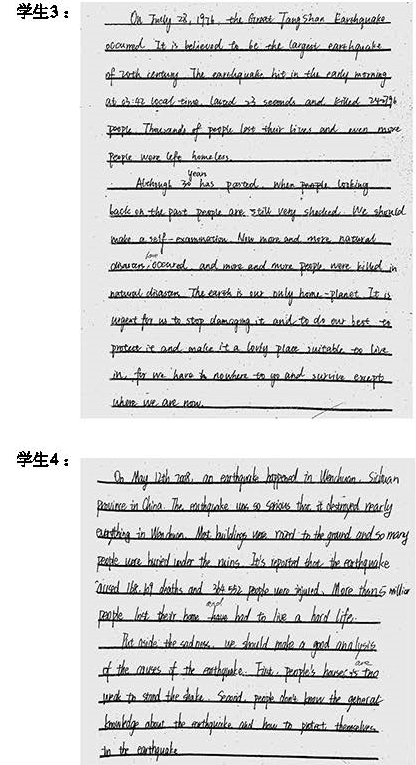 学生3：
On July 28, 1976, the Great TangShan Earthquake
occurred. It is believed to be the largest earthquake
of 20th century. The earthquake hit in the early morning
at 03:42 local time, lasted 23 seconds and killed
people. Thousands of people lost their lives and even more
people were left homeless.
Although 30 years has passed, when people looking
back on the past people are still very shocked. We should
make a self-examination. Now more and more natural
disasters occured, and more and more people were killed in
natural disasters. The earth is our only home-planet. It is
urgent for us to stop damaging it and to do our best to
protect it and make it a lovly place suitable to live
in, for we have nowhere to go and survive except
where we are now.
学生4：
On May 12th 2008, an earthquake happened in Wenchuan, Sichuan
province in China. The earthquake was so serious that it destroyed nearly
everything in Wenchuan. Most buildings were to the ground and so many
people were buried under the ruins. It's reported that the earthquake
deaths and people were injured. More than 5 million
people lost their home and had to live a hard life.
Put aside the sadness, we should make a good analysis
of the causes of the earthquake. First, people's houses are too
weak to stand the shake. Second, people don't know the general
knowledge about the earthquake and how to protect themselves
in the earthquake